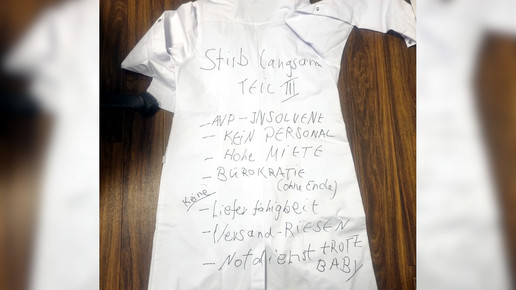 Stirb langsam
TEIL III
- AVP-INSOLVENT
- KEIN PERSONAL
- Hohe MIETE
- BÜROKRATIE
(ohne Ende)
Keine
- Lieferfähigkeit
- Versand-RIESEN
- Notdienst TROTZ
BABY